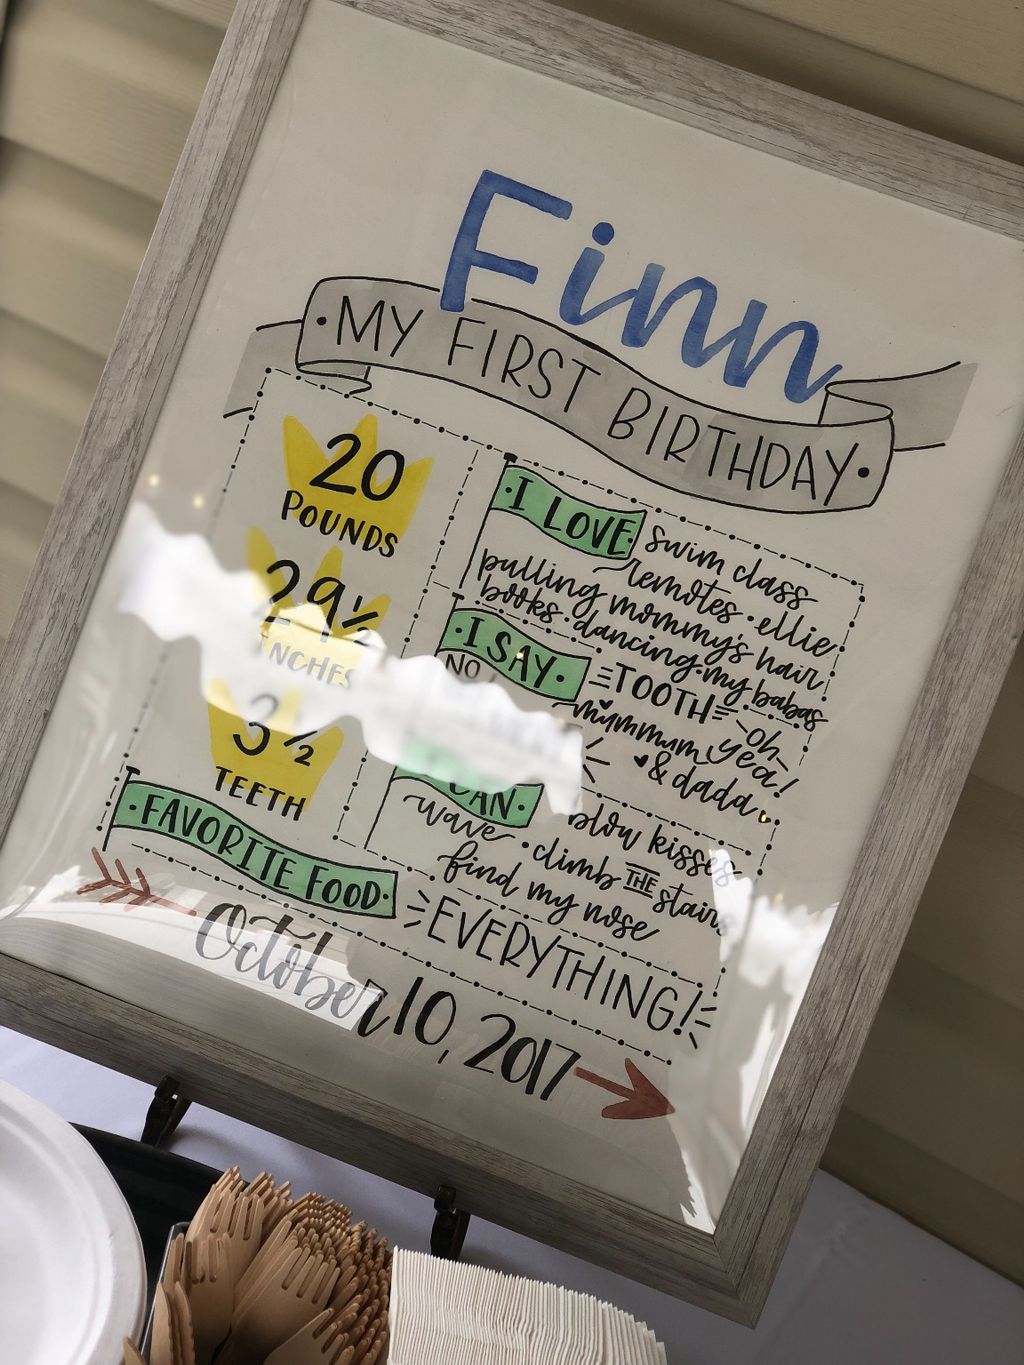 Finn
• MY FIRST BIRTHDAY •
20
POUNDS
29 1/2
INCHES
3 1/2
TEETH
• I LOVE • swim class
remotes • ellie
pulling mommy's hair
books • dancing • my babas
• I SAY • TOOTH
NO
mummum oh yea!
& dada
CAN • blow kisses
wave • climb THE stairs
find my nose
• FAVORITE FOOD • EVERYTHING!
October 10, 2017